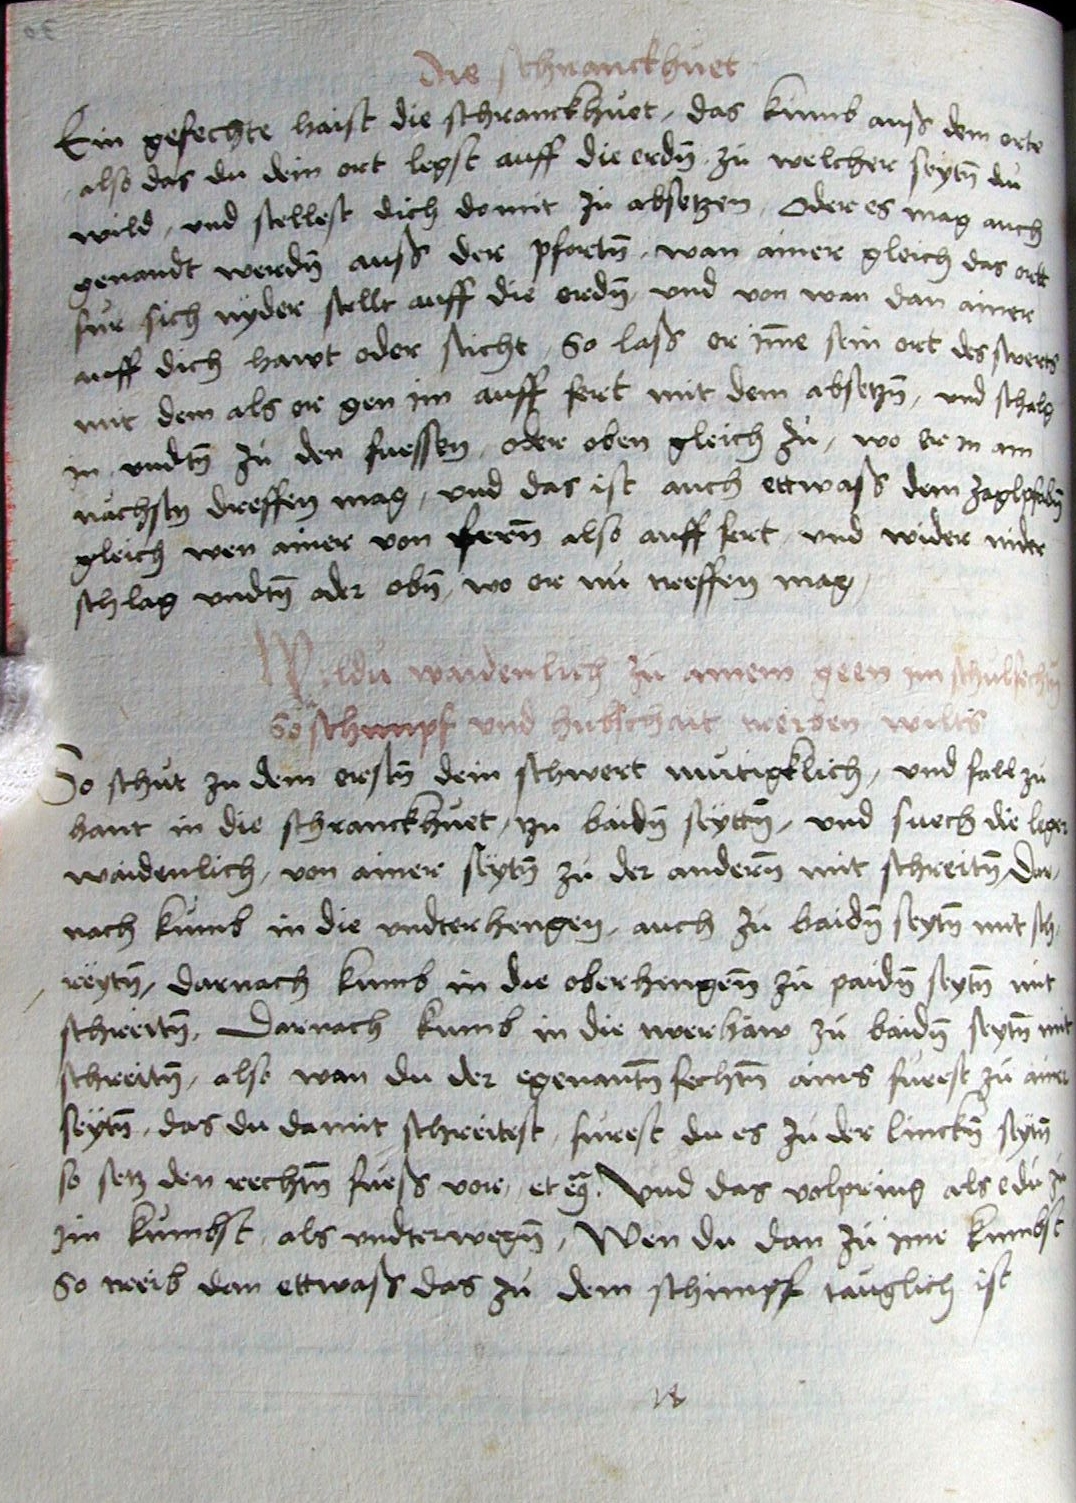 Die schranckhuet
Ein gefechte haist die schranckhuet, das kumb auß dem orte
also das du dein ort legst auff die erdn̄ zu welcher seytn̄ du
wild, und stellest dich domit zu absetzen, Oder es mag auch
genandt werdn̄ auß der pfortn̄, wan ainer gleich das ortt
fur sich nyder stellt auff die erdn̄, und von wan dan ainer
auff dich hawt oder sticht, So laß er im̄e sein ort des swerts
mit dem als er gen im auff fert mit dem absetzn̄, und schalg
in undtn̄ zu den fuessen, oder oben gleich zu, wo er in am
nachstn dreffen mag, und das ist auch ettwaß dem
gleich wen ainer von fern̄ also auff fert und wider nider
schlag undtn̄ oder obn̄, wo er nu treffen mag,
Wildu waidenlich zu ainem geen im schulfechtn̄
So schimpf und hubschait treiben wilts
So schut zu dem erstn̄ dein schwert mutigklich, und fall zu
hant in die schranckhuet, zu baidn̄ seyttn̄, und suech die leger
waidenlich, von ainer seytn̄ zu der andern̄ mit schreitn̄, Dar,
nach kumb in die undterhengen, auch zu baidn̄ seytn̄ mit sch,
reytn̄, darnach kumb in die oberhengen̄ zu paidn̄ seytn̄ mit
schreitn̄, Darnach kumb in die twerhaw zu baidn̄ seytn̄ mit
schreitn̄, also wan du der egenantn̄ fechtn̄ ains fuerst zu ainer
seytn̄, das du damit schreitest, furest du es zu der linckn̄ seytn̄
so setz den rechtn̄ fueß vor, et Und das volpring als e du zu
im kumbst, als undterwegn̄, Wen du dan zu ime kumbst
So treib dan ettwaß das zu dem schimpf tauglich ist